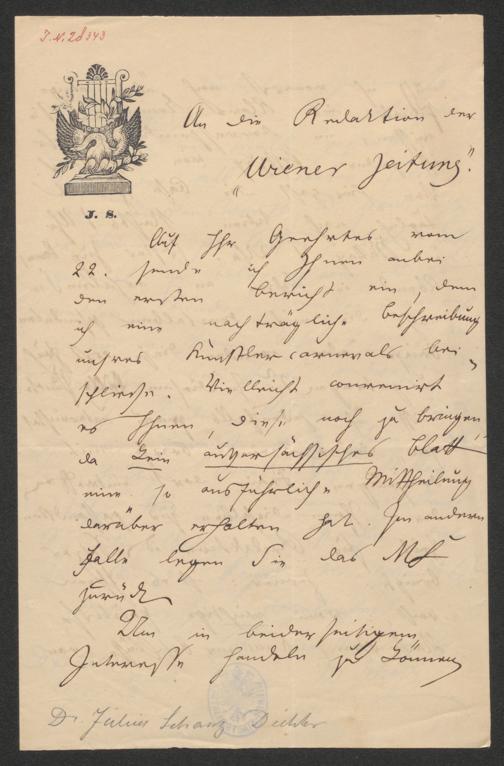 J.N. 28343
An die Redaktion der
"Wiener Zeitung".
J. S.
Auf Ihr Geehrtes vom
22. sende ich Ihnen anbei
den ersten Bericht ein, dem
ich eine nachträgliche Beschreibung
unsres Künstlercarnevals bei-
schließe. Vielleicht convenirt
es Ihnen, diese noch zu bringen,
da kein außersächsisches Blatt
eine so ausführliche Mittheilung
darüber erhalten hat. Im andern
Falle legen Sie das
zurück.
Um in beiderseitigem
Interesse handeln zu können,
Dr. Julius Schanz Dichter